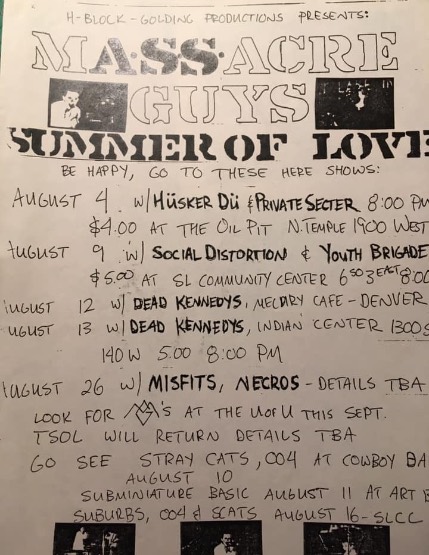 H-BLOCK-GOLDING PRODUCTIONS PRESENTS:
MASSACRE
GUYS
SUMMER OF LOVE
BE HAPPY, GO TO THESE HERE SHOWS:
AUGUST 4 W/ HÜSKER DÜ & PRIVATE SECTER 8:00 PM
$4.00 AT THE OIL PIT N.TEMPLE 1900 WEST
AUGUST 9 W/ SOCIAL DISTORTION & YOUTH BRIGADE
$5.00 AT SL COMMUNITY CENTER 6 SO 3 EAST 8:00
UGUST 12 W/ DEAD KENNEDYS, CAFE - DENVER
UGUST 13 W/ DEAD KENNEDYS, INDIAN CENTER 1300 S
140 W 5.00 8:00 PM
AUGUST 26 W/ MISFITS, NECROS - DETAILS TBA
LOOK FOR 'S AT THE U OF U THIS SEPT.
TSOL WILL RETURN DETAILS TBA
GO SEE STRAY CATS, 004 AT COWBOY BA
AUGUST 10
SUBMINIATURE BASIC AUGUST 11 AT ART B
SUBURBS, 004 & SCATS AUGUST 16 - SLCC